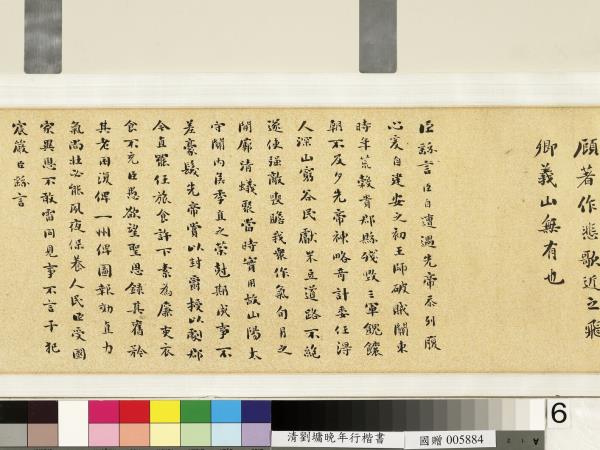 顧著作悲歌近之飛
卿義山無有也
臣繇言臣自遭遇先帝忝列腹
心爰自建安之初王師破賊關東
時年荒穀貴郡縣殘毀三軍餽饟
朝不及夕先帝神略奇計委任得
人深山窮谷民獻米豆道路不絕
遂使強敵喪膽我衆作氣旬月之
間廓清蟻聚當時實用故山陽太
守關內侯季直之策尅期成事不
差豪髮先帝賞以封爵授以劇郡
今直罷任旅食許下素為廉吏衣
食不充臣愚欲望聖恩錄其舊矜
其老困復俾一州俾圖報効直力
氣尚壯必能夙夜保養人民臣受國
家異恩不敢雷同見事不言干犯
宸嚴臣繇言
清劉墉晚年行楷書
國贈 005884
6
A 1 2